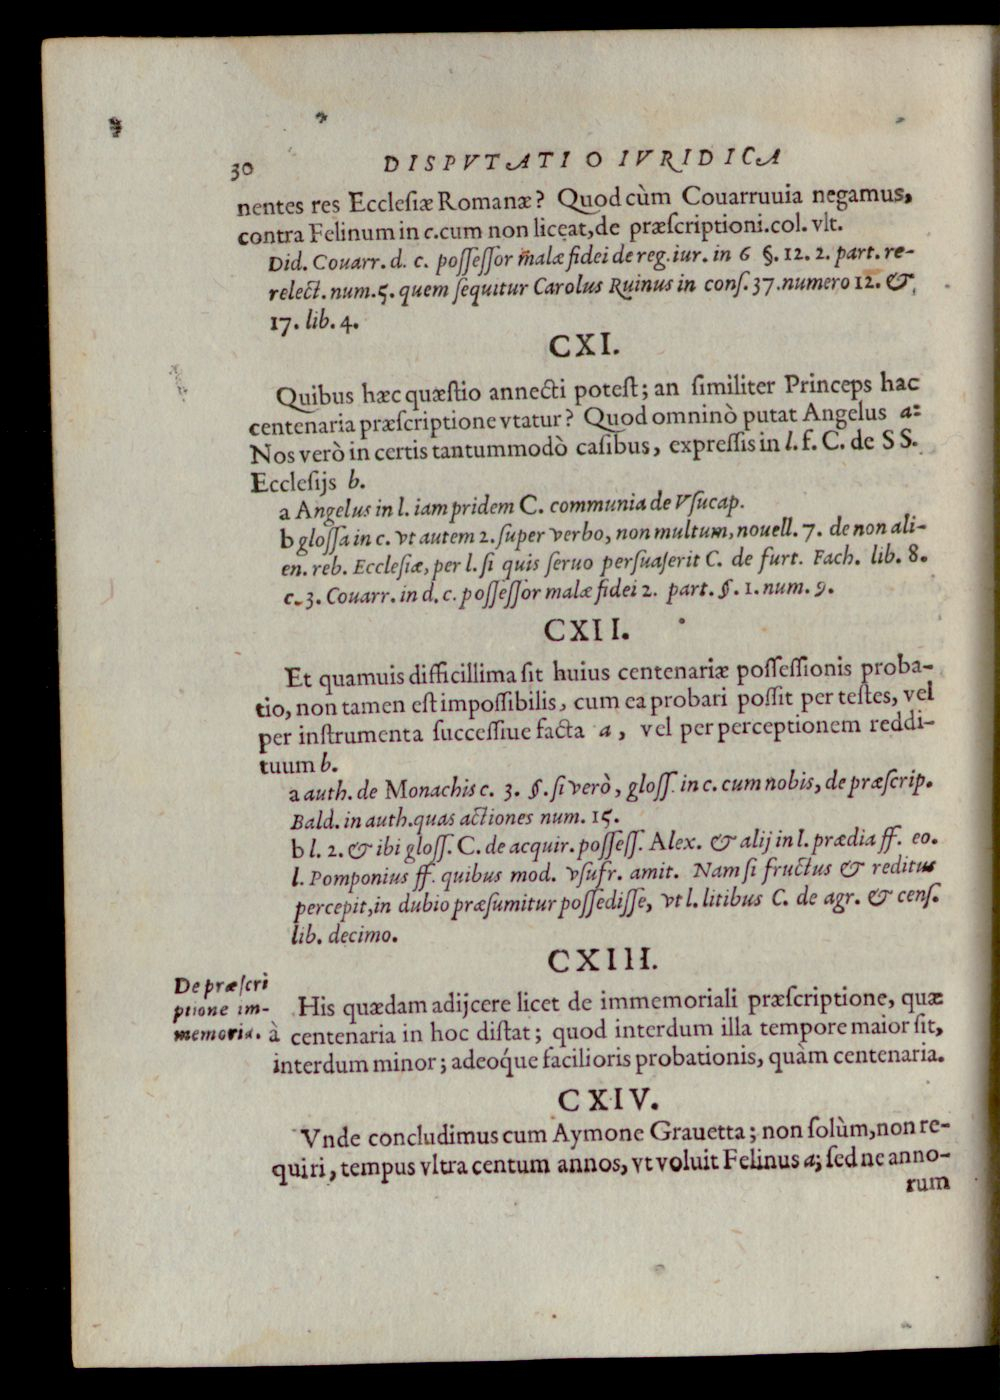 30 DISPVTATIO IVRIDICA
nentes res Ecclesiæ Romanæ? Quod cùm Couarruuia negamus,
contra Felinum in c. cum non liceat, de præscriptioni. col. vlt.
Did. Couarr. d. c. possessor malæ fidei de reg. iur. in 6 §. 12. 2. part. re-
relect. num. 5. quem sequitur Carolus Ruinus in cons. 37. numero 12. &
17. lib. 4.
CXI.
Quibus hæc quæstio annecti potest; an similiter Princeps hac
centenaria præscriptione vtatur? Quod omninò putat Angelus a:
Nos verò in certis tantummodò casibus, expressis in l. f. C. de S S.
Ecclesijs b.
a Angelus in l. iampridem C. communia de Vsucap.
b glossa in c. vt autem 2. super verbo, non multum, nouell. 7. de non ali-
en. reb. Ecclesiæ, per l. si quis seruo persuaserit C. de furt. Fach. lib. 8.
c. 3. Couarr. in d. c. possessor malæ fidei 2. part. §. 1. num. 9.
CXII.
Et quamuis difficillima sit huius centenariæ possessionis proba-
tio, non tamen est impossibilis, cum ea probari possit per testes, vel
per instrumenta successiue facta a, vel per perceptionem reddi-
tuum b.
a auth. de Monachis c. 3. §. si verò, gloss. in c. cum nobis, de præscrip.
Bald. in auth. quas actiones num. 15.
b l. 2. & ibi gloss. C. de acquir. possess. Alex. & alij in l. prædia ff. eo.
l. Pomponius ff. quibus mod. vsufr. amit. Nam si fructus & reditus
percepit, in dubio præsumitur possedisse, vt l. litibus C. de agr. & cens.
lib. decimo.
CXIII.
De præscri
ptione im-
memoria.
His quædam adijcere licet de immemoriali præscriptione, quæ
à centenaria in hoc distat; quod interdum illa tempore maior sit,
interdum minor; adeóque facilioris probationis, quàm centenaria.
CXIV.
Vnde concludimus cum Aymone Grauetta; non solùm, non re-
quiri, tempus vltra centum annos, vt voluit Felinus a; sed ne anno-
rum